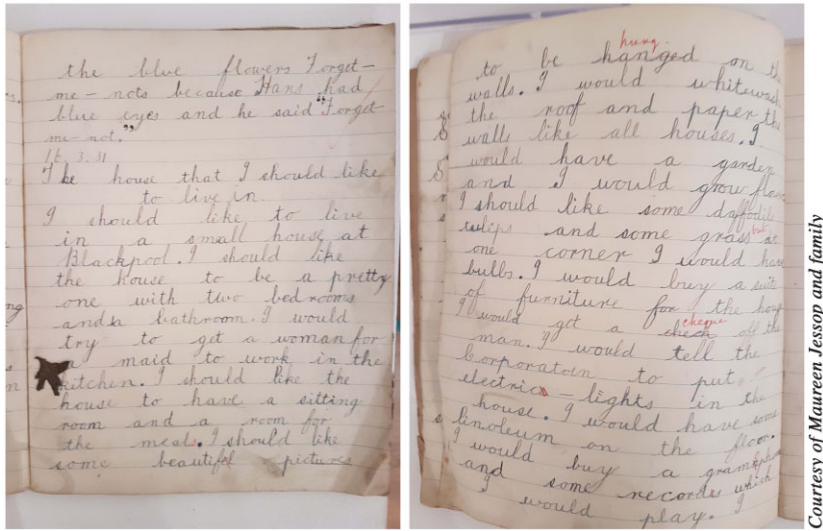 the blue flowers Forget-
me-nots because Hans had
blue eyes and he said "Forget-
me-not."
16.3.31
The house that I should like
to live in.
I should like to live
in a small house at
Blackpool. I should like
the house to be a pretty
one with two bedrooms
and a bathroom. I would
try to get a woman for
a maid to work in the
kitchen. I should like the
house to have a sitting
room and a room for
the meals. I should like
some beautiful pictures
hung
to be hanged on the
walls. I would whitewash
the roof and paper the
walls like all houses. I
would have a garden
and I would grow
I should like some daffodils
tulips and some grass but at
one corner I would have
bulbs. I would buy a suite
of furniture for the house
cheque
I would get a check off the
man. I would tell the
Corporatoin to put
electric-lights in the
house. I would have some
linoleum on the floor.
I would buy a
and some records which
I would play. I
Courtesy of Maureen Jessop and family